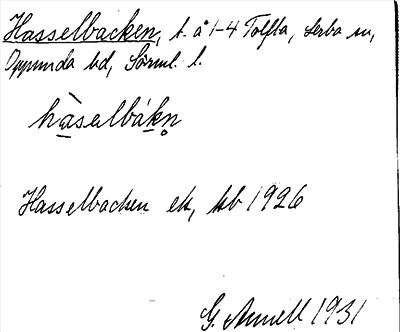 Hasselbacken, t. å 1-4 Tolfta, Lerbo sn,
Oppunda hd, Sörml. l.
hàsəlbákn̥
Hasselbacken ek, kb 1926
G. Annell 1931